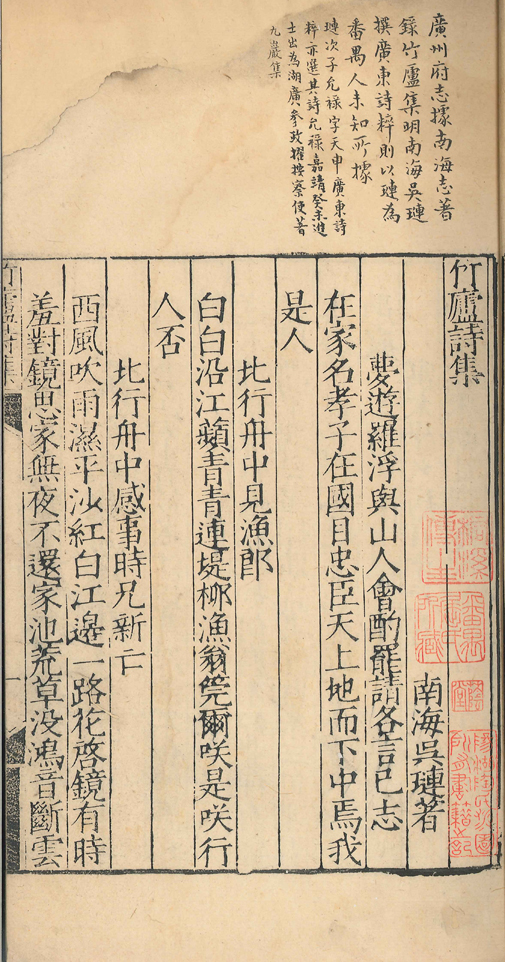 廣州府志據南海志著
錄竹廬集明南海吳璉
撰廣東詩粹則以璉為
番禺人未知所據
璉次子允祿字天申廣東詩
粹亦選其詩允祿嘉靖癸未進
士出為湖廣參政擢按察使著
九巖集
竹廬詩集
南海吳璉著
夢遊羅浮與山人會酌罷請各言己志
在家名孝子在國目忠臣天上地而下中焉我
是人
北行舟中見漁郎
白白沿江蘋青青連堤柳漁翁筦爾咲是咲行
人否
北行舟中感事時兄新亡
西風吹雨濕平沙紅白江邊一路花啓鏡有時
羞對鏡思家無夜不還家池荒草没鴻音斷雲
竹廬詩集
一